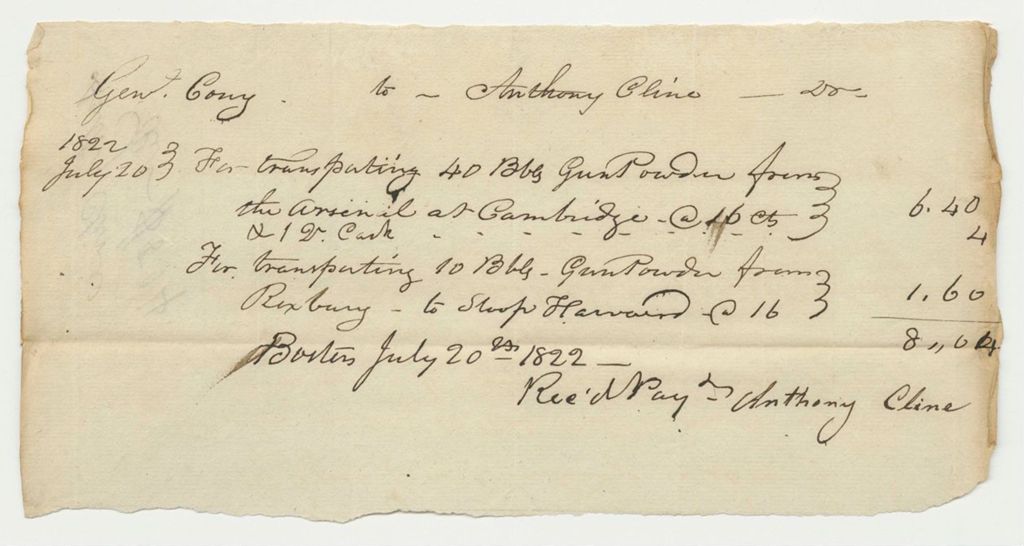 Genl. Cony to ~ Anthony Cline — Dr
1822
July 20 } For transpating 40 Bbls GunPowder from
the Arsenal at Cambridge - @ 16 Cts } 6.40
& 1 Dr. Cask - - - - - - - 4
For transpating 10 Bbls - GunPowder from
Roxbury - to Sloop Harvard @ 16 } 1.60
8,,04
Boston July 20th 1822 —
Rec'd Paymt Anthony Cline